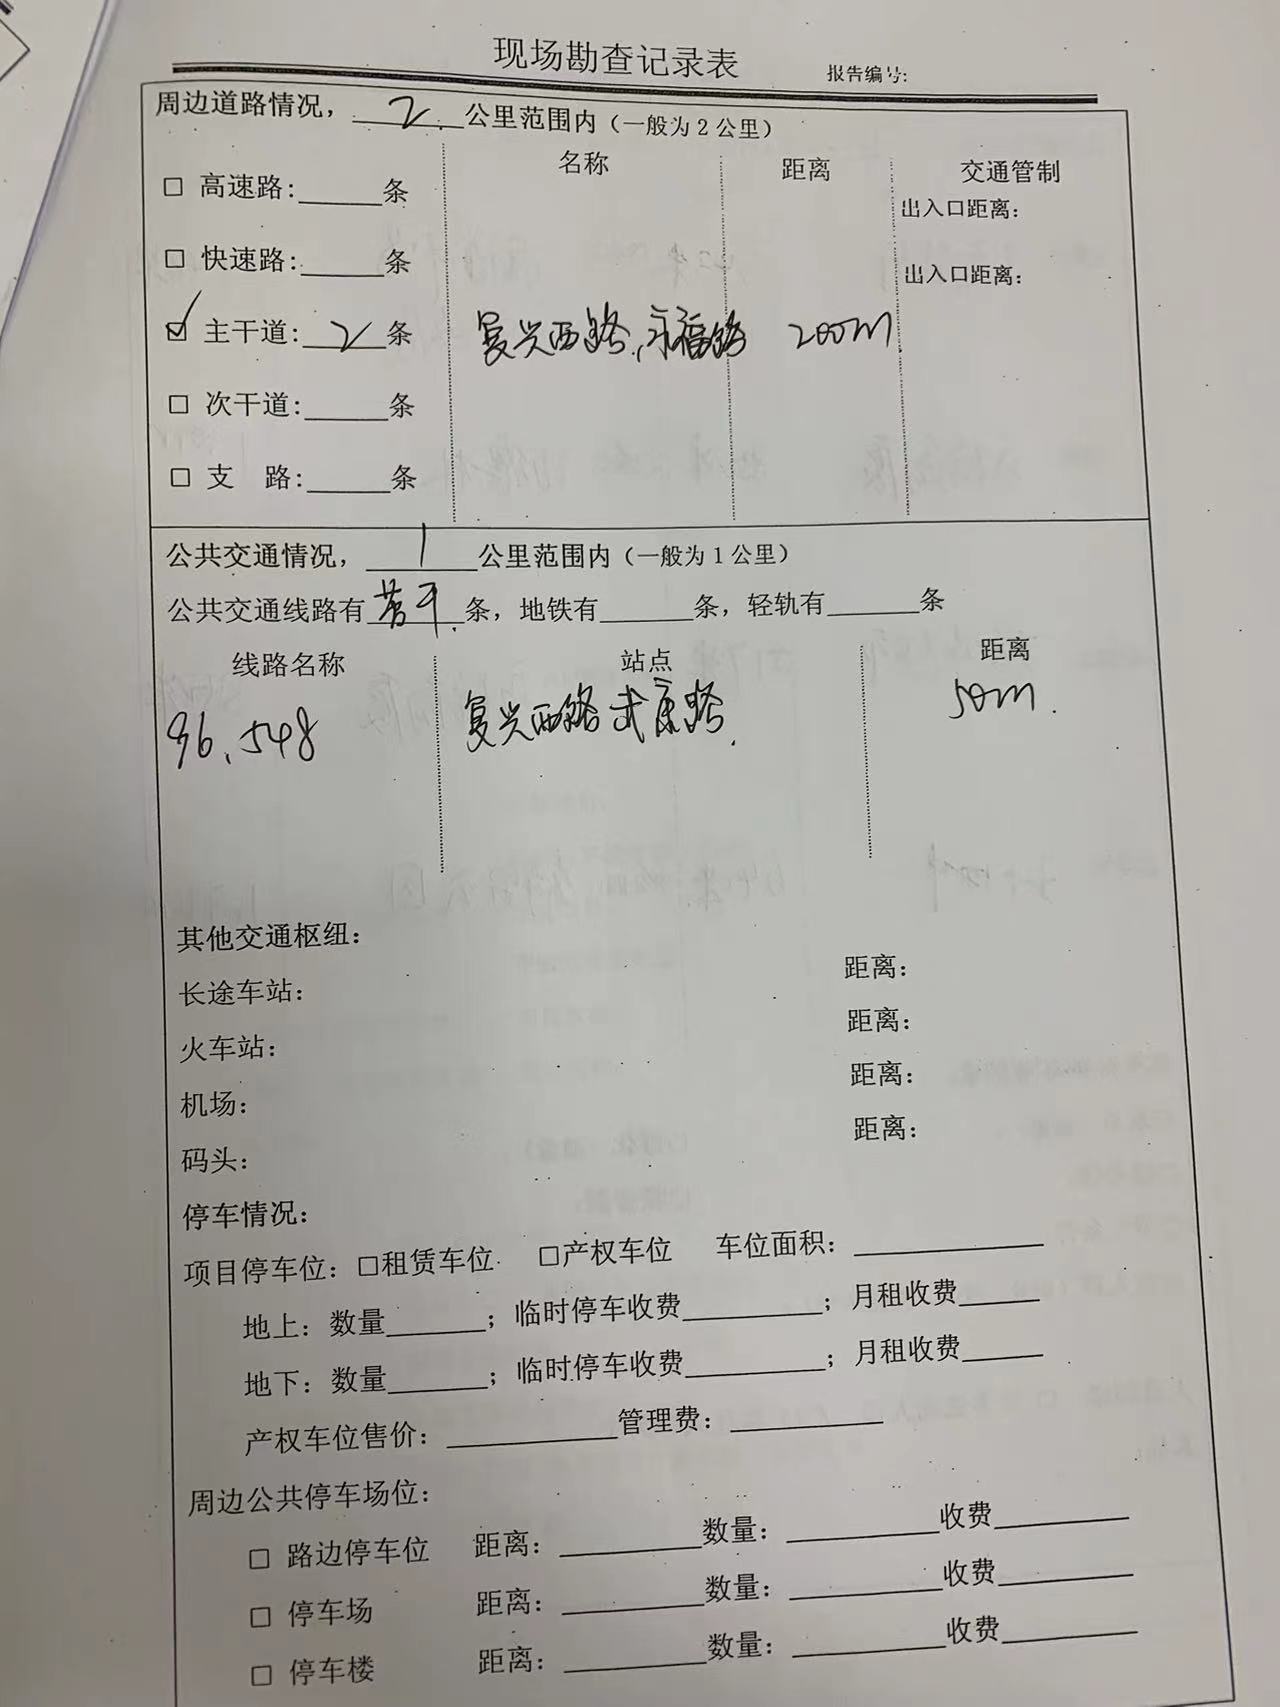 现场勘查记录表 报告编号:
周边道路情况，2公里范围内（一般为2公里）
名称 距离 交通管制
□ 高速路:______条 出入口距离:
□ 快速路:______条 出入口距离:
☑ 主干道: 2 条 复兴西路、永福路 200m
□ 次干道:______条
□ 支 路:______条
公共交通情况，1公里范围内（一般为1公里）
公共交通线路有若干条，地铁有______条，轻轨有______条
线路名称 站点 距离
96、548 复兴西路武康路 50m
其他交通枢纽:
长途车站: 距离:
火车站: 距离:
机场: 距离:
码头: 距离:
停车情况:
项目停车位: □租赁车位 □产权车位 车位面积:______
地上: 数量______; 临时停车收费______; 月租收费______
地下: 数量______; 临时停车收费______; 月租收费______
产权车位售价:______管理费:______
周边公共停车场位:
□ 路边停车位 距离:______数量:______收费______
□ 停车场 距离:______数量:______收费______
□ 停车楼 距离:______数量:______收费______